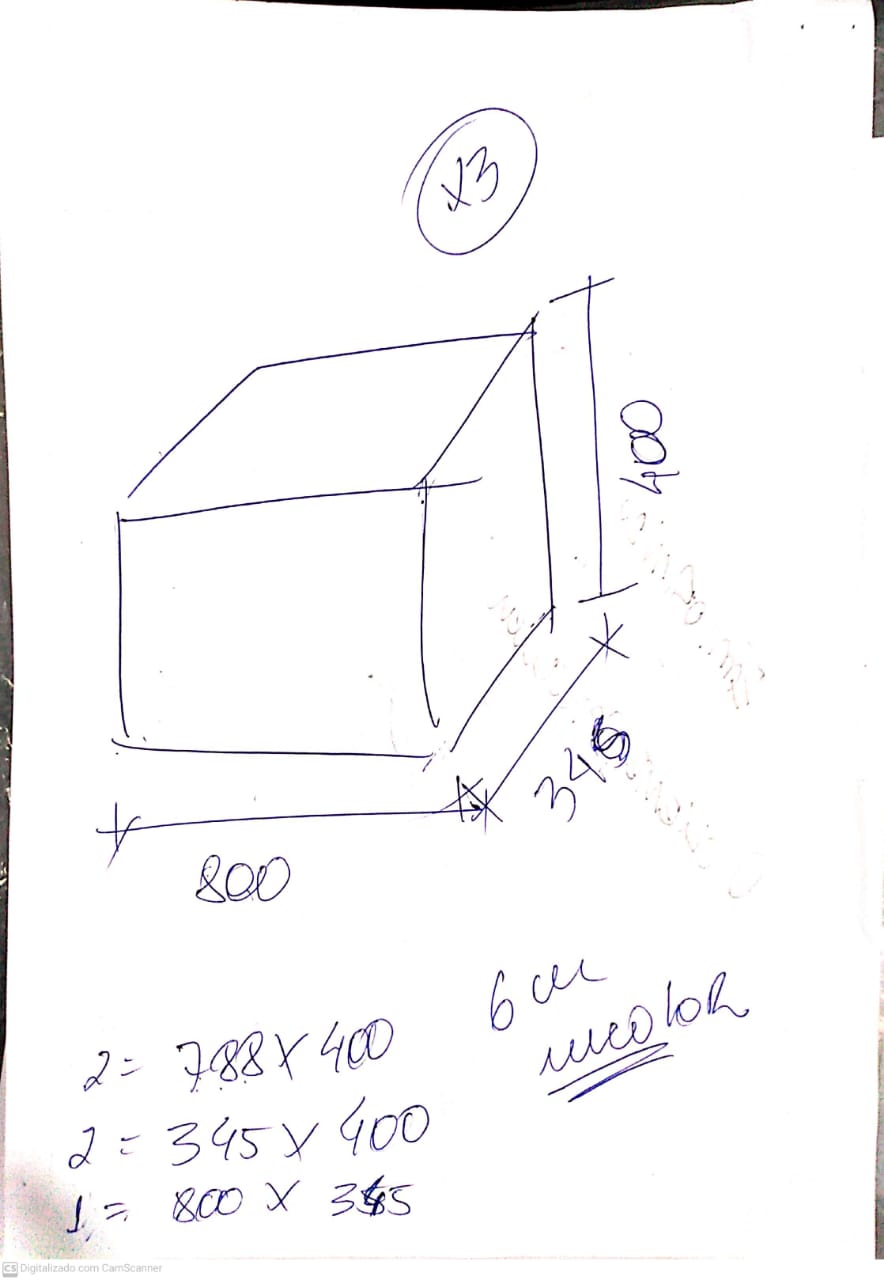 x3
400
345
800
6 m
incolor
2= 788 x 400
2= 345 x 400
1= 800 x 345
CS Digitalizado com CamScanner